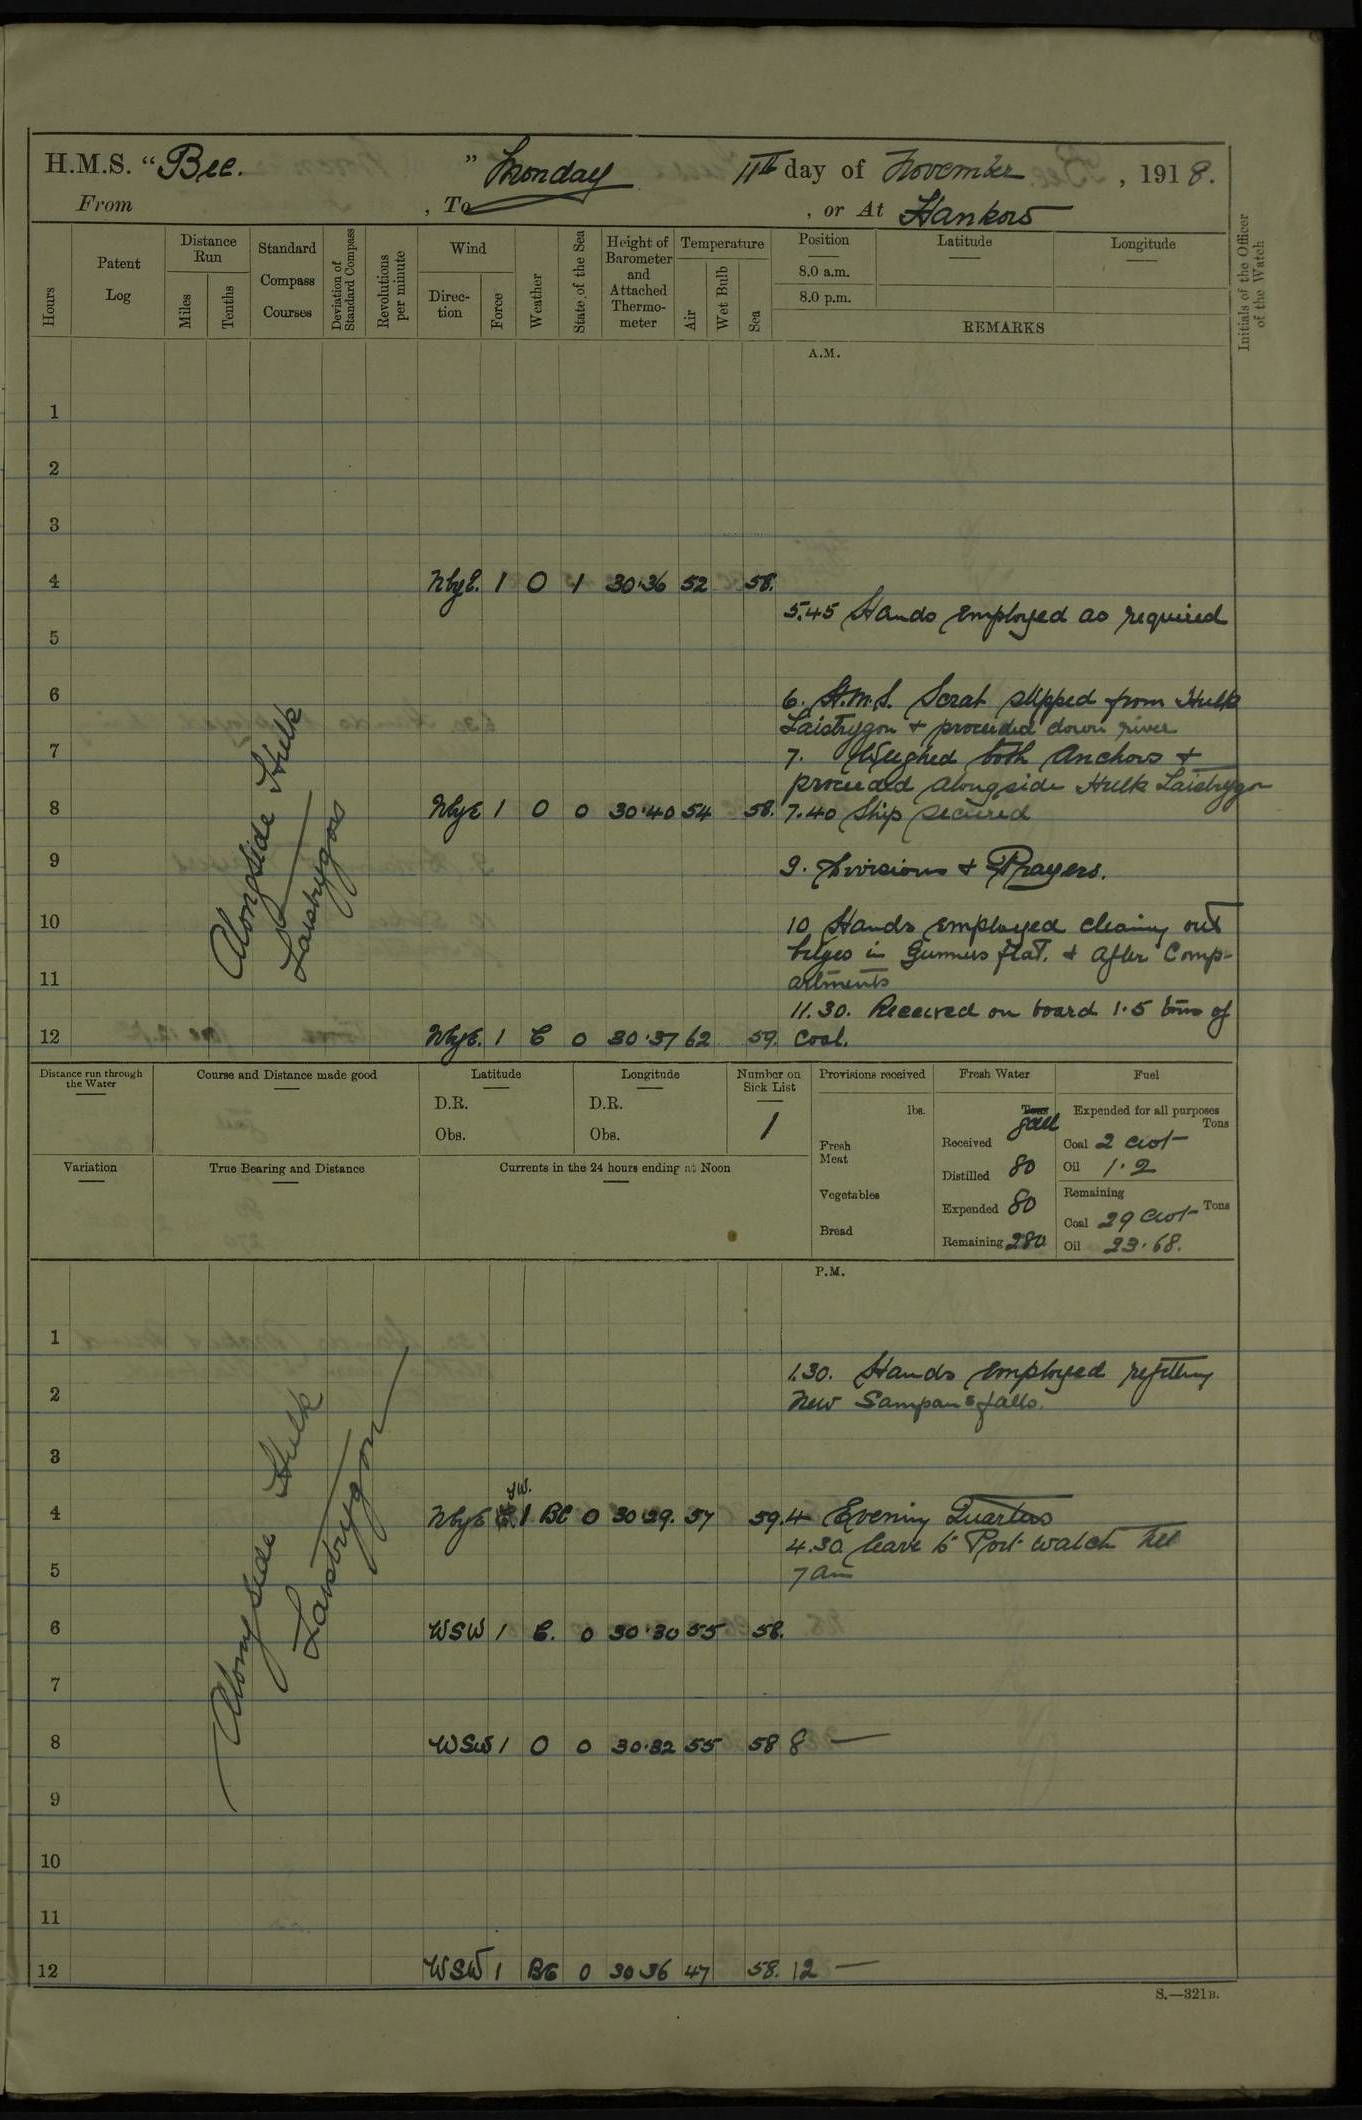 H.M.S. “Bee.” Monday 11th day of November, 1918.
From , To , or At Hankow
Hours
Patent Log
Distance Run
Miles
Tenths
Standard Compass Courses
Deviation of Standard Compass
Revolutions per minute
Wind
Direction
Force
Weather
State of the Sea
Height of Barometer and Attached Thermometer
Temperature
Air
Wet Bulb
Sea
Position
8.0 a.m.
8.0 p.m.
Latitude
Longitude
REMARKS
Initials of the Officer of the Watch
A.M.
1
2
3
4 NbyE. 1 O 1 30.36 52 58.
5.45 Hands employed as required
5
6 6. H.M.S. Scrat slipped from Hulk
Laistrygon + proceeded down river
7 7. Weighed both Anchors +
proceeded alongside Hulk Laistrygon
8 NbyE 1 O 0 30.40 54 58. 7.40 Ship secured
9 9. Divisions + Prayers.
10 10 Hands employed cleaning out
bilges in Gunners flat. + after Comp-
11 artments
11.30. Received on board 1.5 tons of
12 NbyE. 1 C 0 30.37 62 59. Coal.
Alongside Hulk
Laistrygon
Distance run through the Water
Course and Distance made good
Latitude
D.R.
Obs.
Longitude
D.R.
Obs.
Number on Sick List
1
Variation
True Bearing and Distance
Currents in the 24 hours ending at Noon
Provisions received
lbs.
Fresh Meat
Vegetables
Bread
Fresh Water
Tons gall
Received
Distilled 80
Expended 80
Remaining 280
Fuel
Expended for all purposes
Tons
Coal 2 cwt
Oil 1.2
Remaining
Tons
Coal 29 cwt
Oil 23.68.
P.M.
1
1.30. Hands employed refitting
2 New Sampans falls.
3
4 NbyE 1 BC 0 30.29. 57 59. 4 Evening Quarters
4.30. leave to Port watch till
5 7 am
6 WSW 1 C. 0 30.30 55 58.
7
8 WSW 1 O 0 30.32 55 58 8 —
9
10
11
12 WSW 1 BC 0 30 36 47 58. 12 —
Alongside Hulk
Laistrygon
S.—321B.